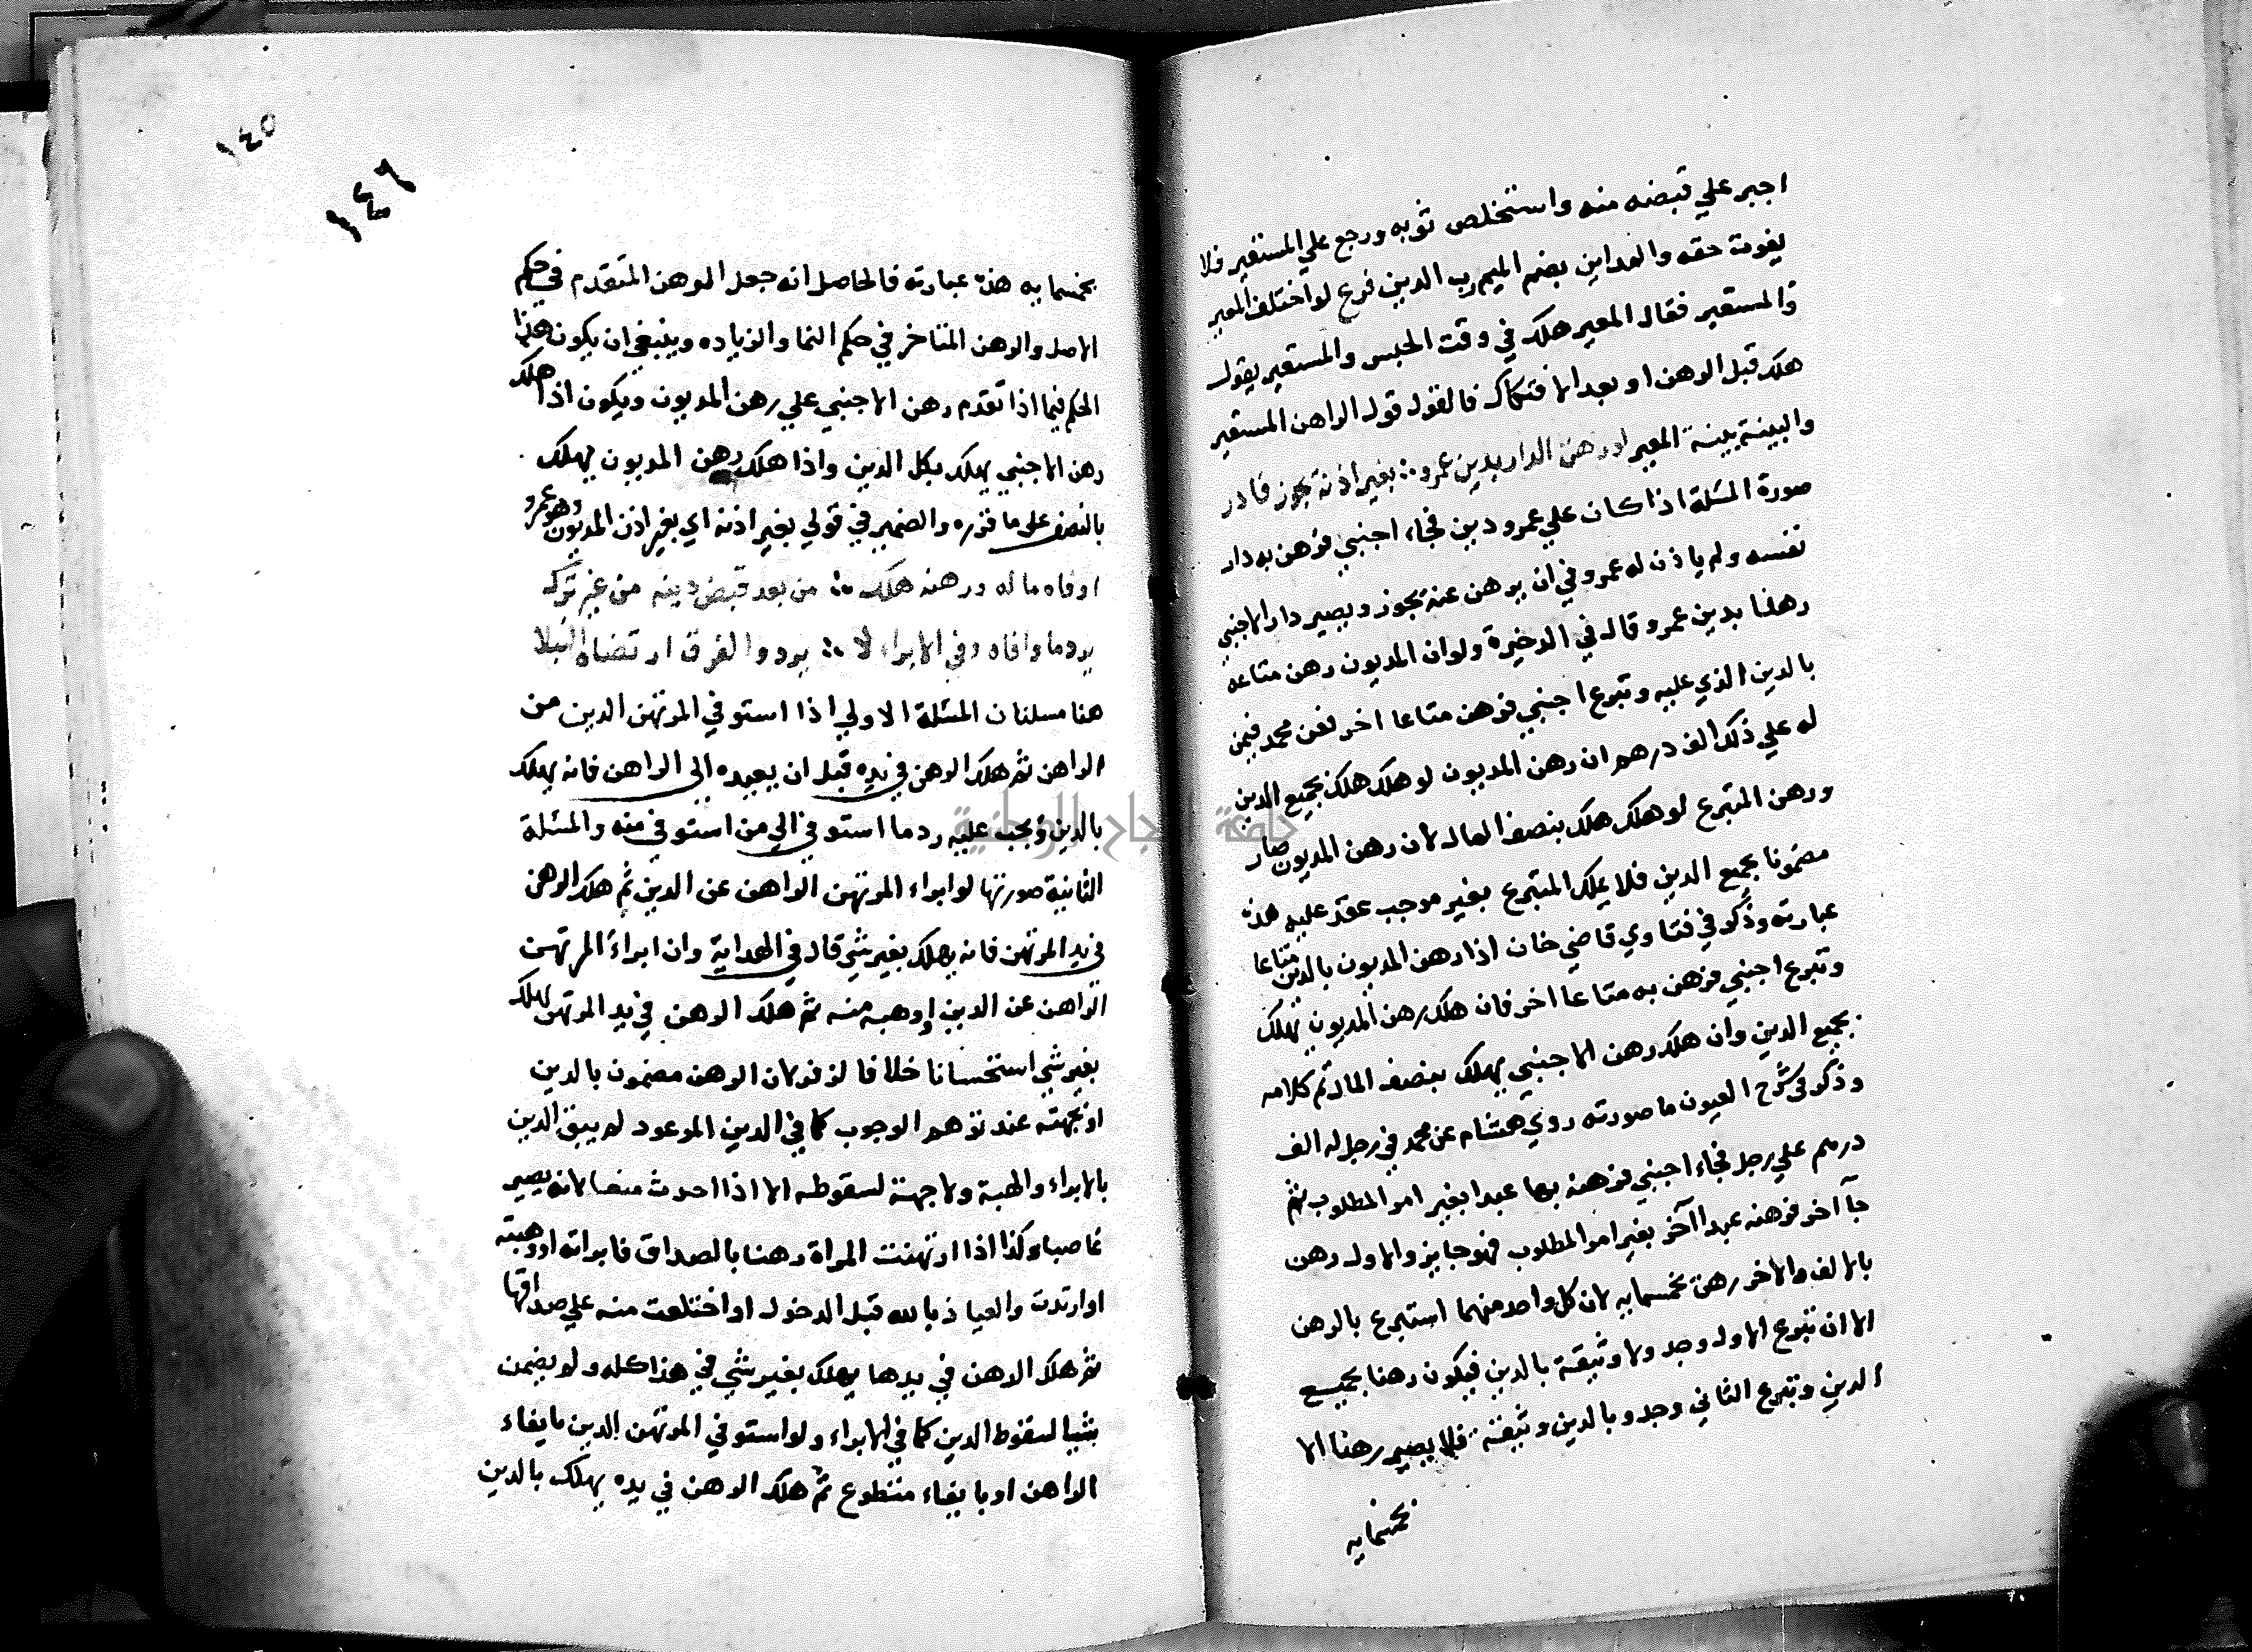 اجبر علي قبضه منه واستخلص ثوبه ورجع علي المستعير فلا
يفوت حقه والمداين بضم الميم رب الدين فرع لو اختلف المعير
والمستعير فقال المعير هلك في وقت الحبس والمستعير يقول
هلك قبل الرهن او بعد الافتكاك فالقول قول الراهن المستعير
والبينة بينة المعير لو رهن الدار بدين عمرو ∴ بغير اذنه يجوز فادر
صورة المسئلة اذا كان علي عمرو دين فجاء اجنبي فرهن به دار
نفسه ولم ياذن له عمرو في ان يرهن عنه يجوز ويصير دار الاجنبي
رهنا بدين عمرو قال في الدخيرة ولو ان المديون رهن متاعه
بالدين الذي عليه وتبرع اجنبي فرهن متاعا اخر فعن محمد فيمن
له علي ذلك الف درهم ان رهن المديون لو هلك هلك بجميع الدين
ورهن المتبرع لو هلك هلك بنصف المال لان رهن المديون صار
مضمونا بجميع الدين فلا يملك المتبرع بغير موجب عقد عليه هذه
عبارته وذكر في فتاوي قاضي خان اذا رهن المديون بالدين متاعا
وتبرع اجنبي فرهن به متاعا اخر فان هلك رهن المديون يهلك
بجميع الدين وان هلك رهن الاجنبي يهلك بنصف المال تم كلامه
وذكر في شرح العيون ما صورته روي هشام عن محمد في رجل له الف
درهم علي رجل فجاء اجنبي فرهنه بها عبدا بغير امر المطلوب ثم
جآ آخر فرهنه عبدا آخر بغير امر المطلوب فهو جايز والاول رهن
بالالف والاخر رهن بخمسمايه لان كل واحد منهما استبرع بالرهن
الا ان تبرع الاول وجد ولا وثيقة بالدين فيكون رهنا بجميع
الدين وتبرع الثاني وجد وبالدين وثيقة فلا يصير رهنا الا
بخمسمايه
١٤٥
١٤٦
بخمسمايه هذه عبارته فالحاصل انه جعل الرهن المتقدم في حكم
الاصل والرهن المتاخر في حكم النما والزياده وينبغي ان يكون هذا
الحكم فيما اذا تقدم رهن الاجنبي علي رهن المديون ويكون اذا هلك
رهن الاجنبي يهلك بكل الدين واذا هلك رهن المديون يهلك
بالنصف علي ما قرره والضمير في قولي بغير اذنه اي بغير اذن المديون وهو عمرو
اوفاه ماله ورهنه هلك ∴ من بعد قبض دينه من غير ترك
يرد ما وافاه وفي الابراء لا ∴ يرد والفرق ارتضاه النبلا
هنا مسلتان المسئلة الاولي اذا استوفي المرتهن الدين من
الراهن ثم هلك الرهن في يده قبل ان يعيده الى الراهن فانه يهلك
بالدين ويجب عليه رد ما استوفي الي من استوفي منه والمسئلة
الثانية صورتها لو ابراء المرتهن الراهن عن الدين ثم هلك الرهن
في يد المرتهن فانه يهلك بغير شي قال في الهداية وان ابراء المرتهن
الراهن عن الدين او هبه منه ثم هلك الرهن في يد المرتهن يهلك
بغير شي استحسانا خلافا لزفر لان الرهن مضمون بالدين
او بجهته عند توهم الوجوب كما في الدين الموعود لم يبق الدين
بالابراء والهبة ولا جهة لسقوطه الا اذا احدث منعا لانه يصير
غاصبا وكذا اذا ارتهنت المراة رهنا بالصداق فابراته او وهبته
او ارتدت والعياذ بالله قبل الدخول او اختلعت منه علي صداقها
ثم هلك الرهن في يدها يهلك بغير شي في هذا كله ولم يضمن
شيا لسقوط الدين كما في الابراء ولو استوفي المرتهن الدين بايفاء
الراهن او بايفاء متطوع ثم هلك الرهن في يده يهلك بالدين
جامعة النجاح الوطنية